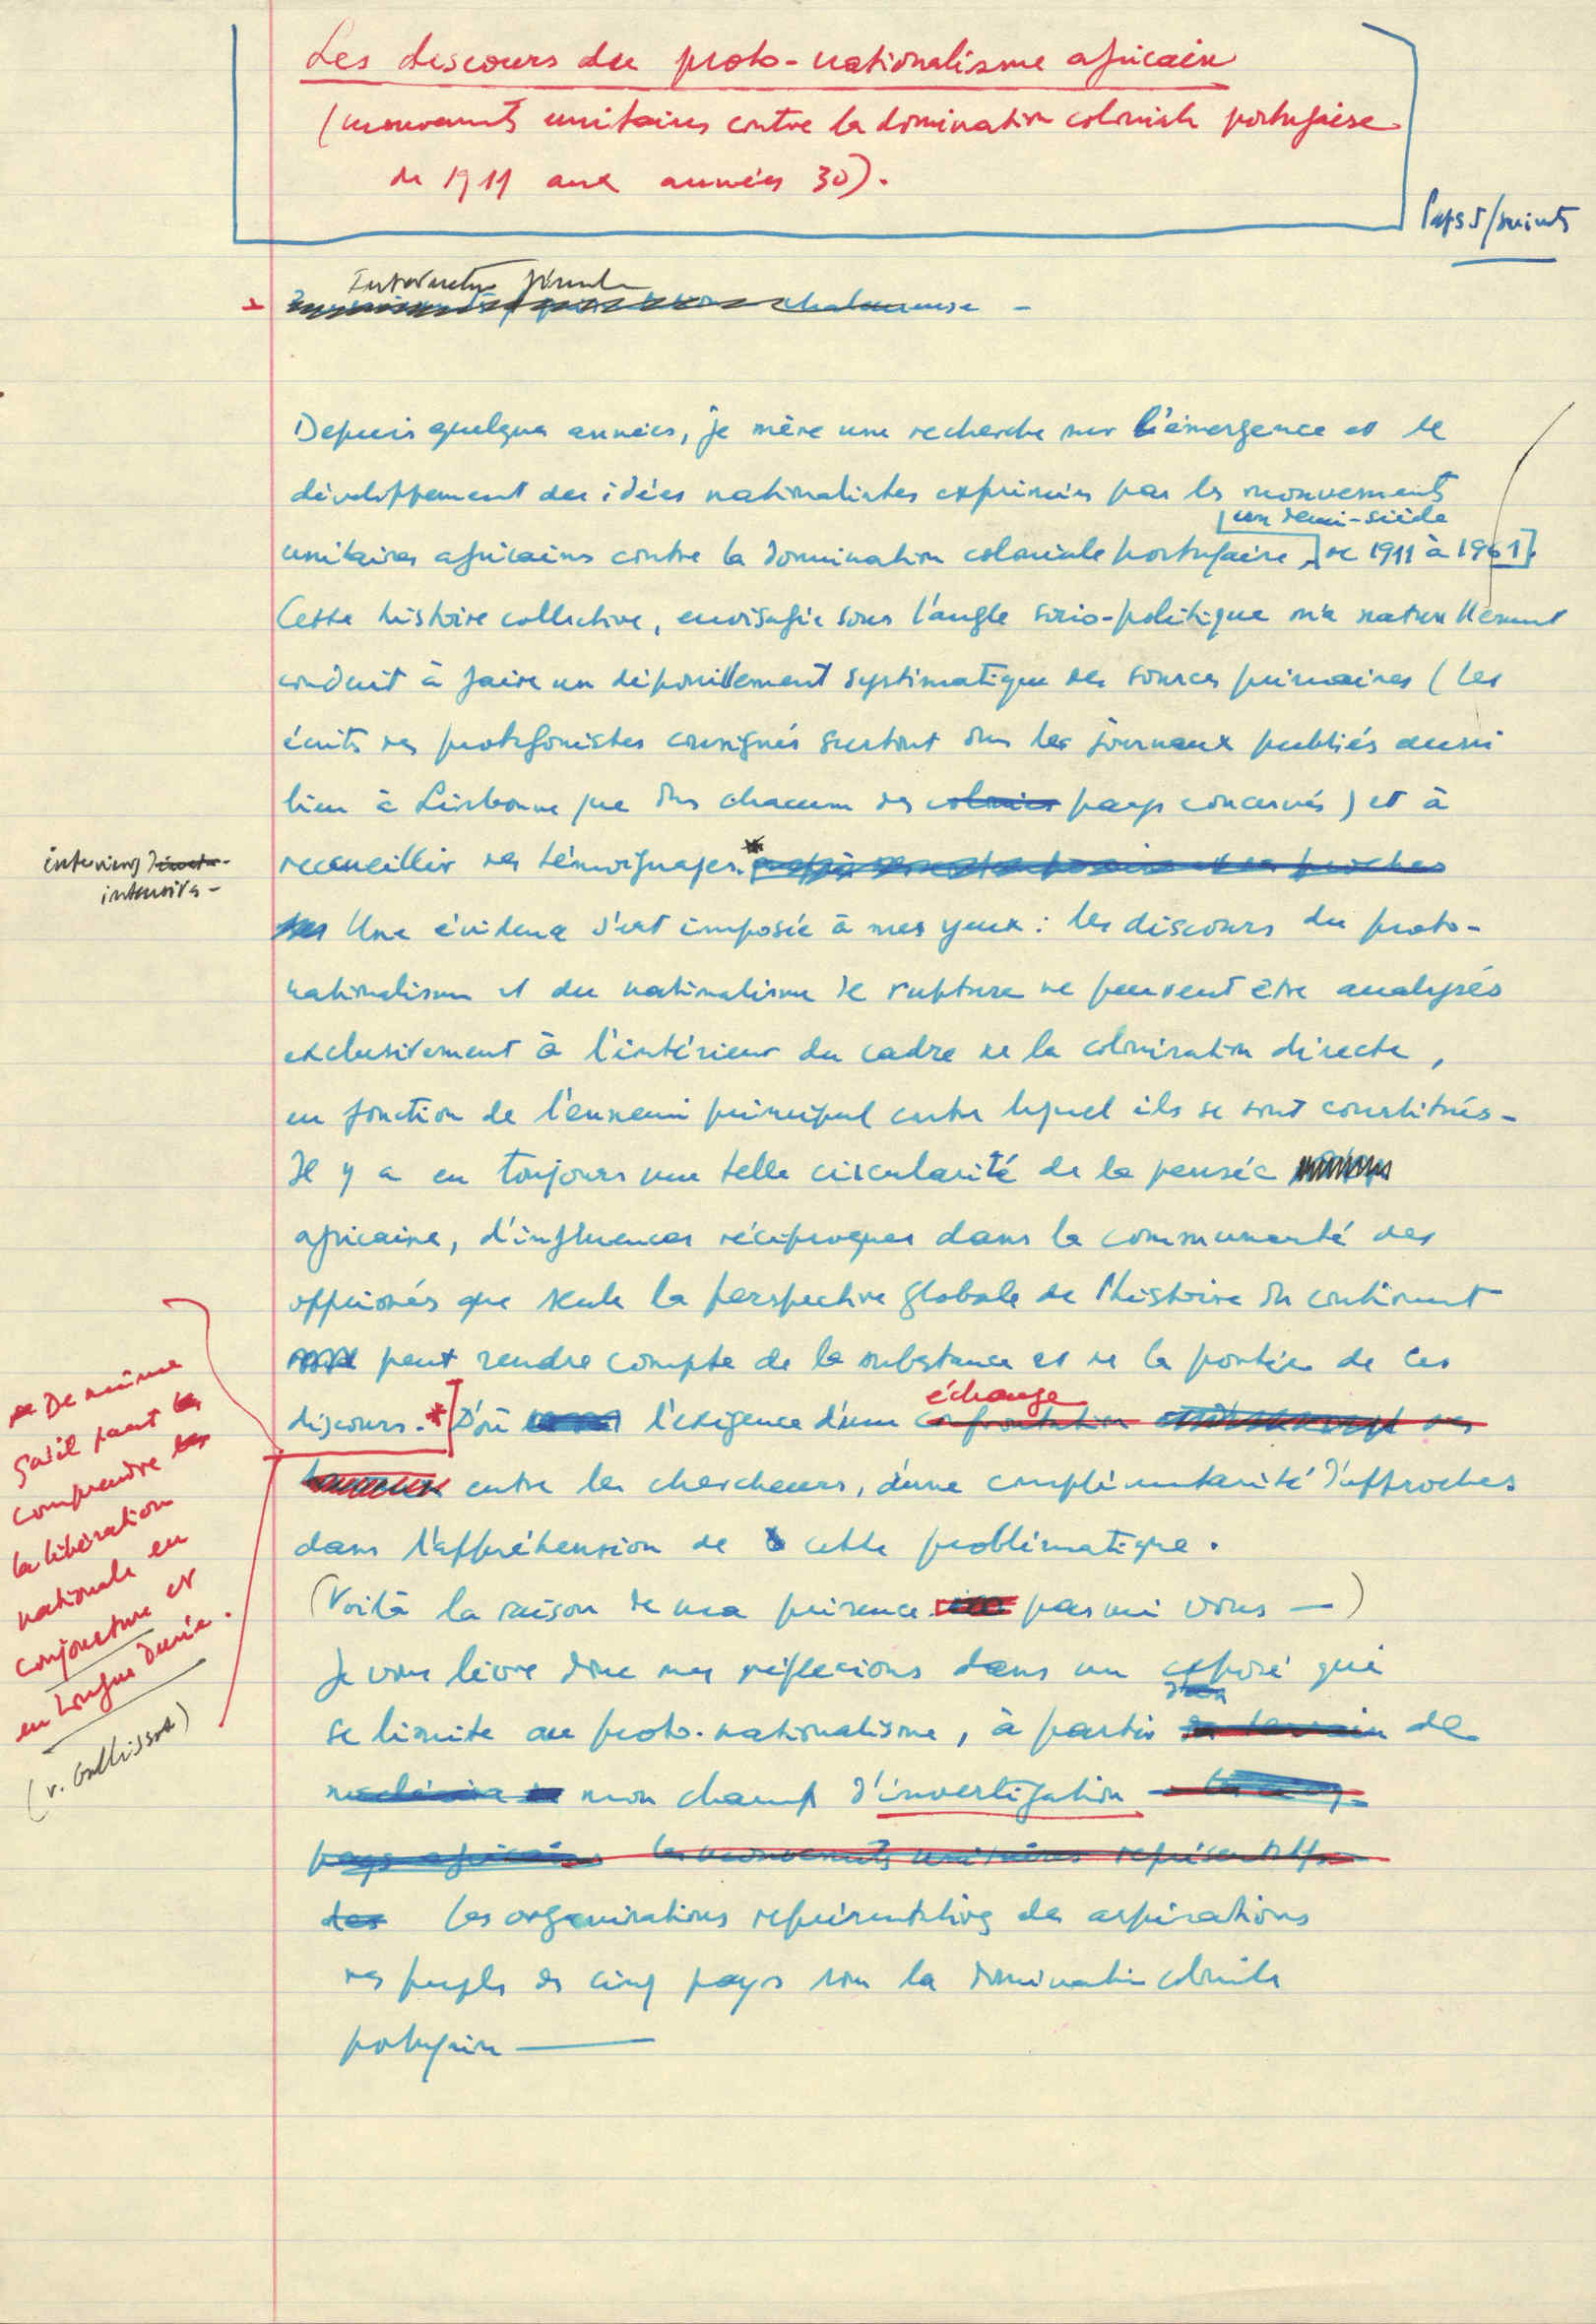 Les discours du proto-nationalisme africain
(mouvements unitaires contre la domination coloniale portugaise
de 1911 aux années 30).
Introduction générale
Depuis quelques années, je mène une recherche sur l'émergence et le
développement des idées nationalistes exprimées par les mouvements
un demi-siècle
unitaires africains contre la domination coloniale portugaise, de 1911 à 1961.
Cette histoire collective, envisagée sous l'angle socio-politique m'a naturellement
conduit à faire un dépouillement systématique des sources primaires (les
écrits des protagonistes consignés surtout dans les journaux publiés aussi
bien à Lisbonne que dans chacun des colonies pays concernés) et à
interviews
intensives -
recueillir des témoignages. *
Une évidence s'est imposée à mes yeux : les discours du proto-
nationalisme et du nationalisme de rupture ne peuvent être analysés
exclusivement à l'intérieur du cadre de la colonisation directe,
en fonction de l'ennemi principal contre lequel ils se sont constitués -
Il y a eu toujours une telle circularité de la pensée
africaine, d'influences réciproques dans la communauté des
opprimés que seule la perspective globale de l'histoire du continent
peut rendre compte de la substance et de la portée de ces
échange
discours. * D'où l'exigence d'une confrontation
entre les chercheurs, d'une complémentarité d'approches
dans l'appréhension de cette problématique.
* De même
qu'il faut
comprendre
la libération
nationale en
conjoncture et
en longue durée.
(v. Gallissot)
(Voilà la raison de ma présence parmi vous —)
Je vous livre donc mes réflexions dans un exposé qui
se limite au proto-nationalisme, à partir de
mon champ d'investigation
pays africains les mouvements unitaires représentatifs
des les organisations représentatives des aspirations
des peuples des cinq pays sous la domination coloniale
portugaise —